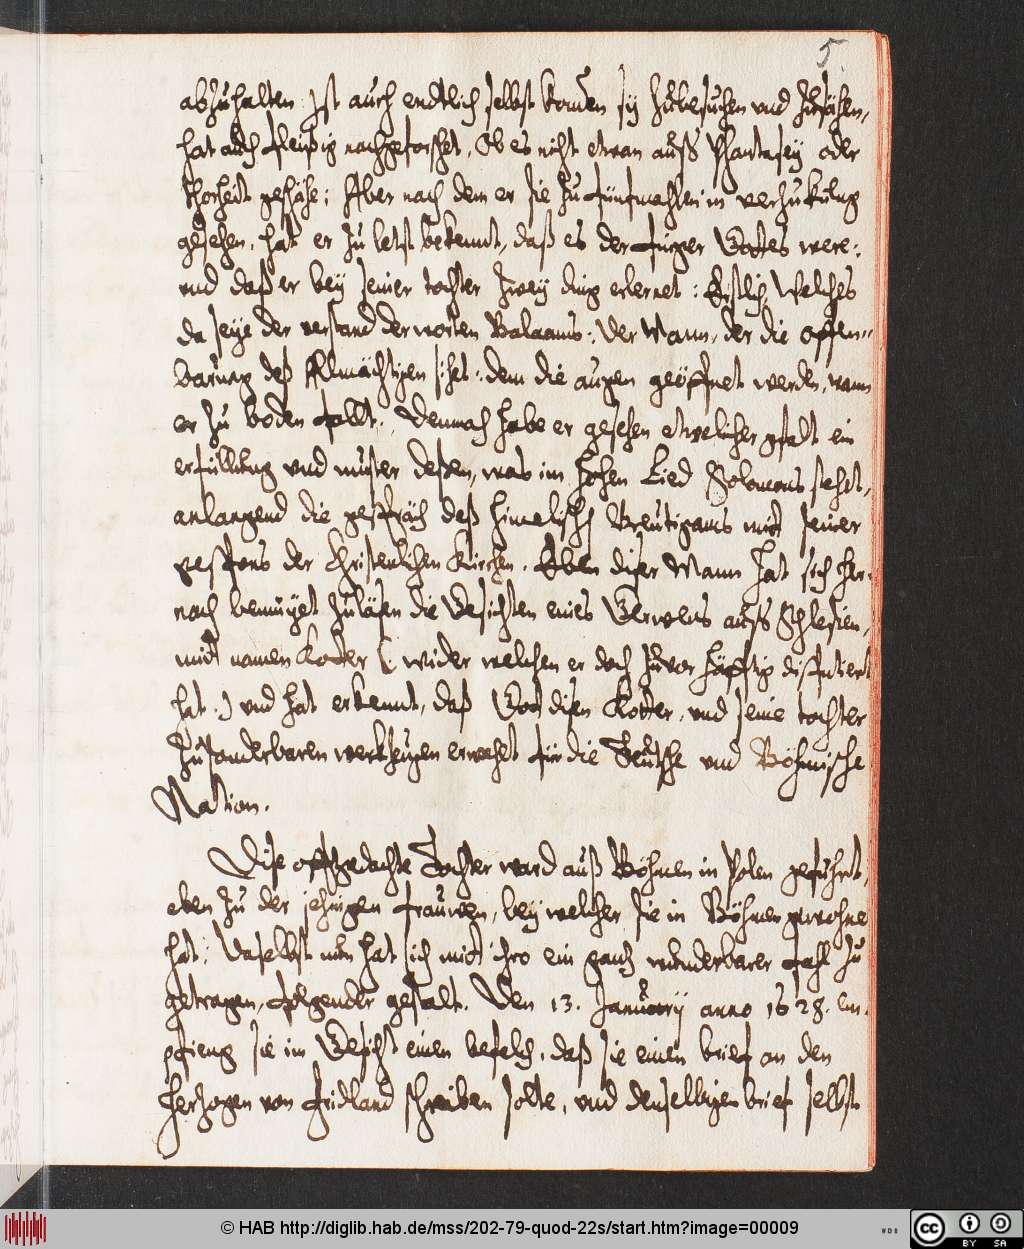 5.
abzuhalten: Ist auch endtlich selbst komen sÿ zubesuchen und zusähen,
hat auch fleissig nachgeforschet, Ob es nicht etwan auß Phantasÿ oder
thorheit geschähe: Aber nach dem er sie zu fünfmahlen in verzukung
gesehen, hat er zu letst bekennt, daß es der finger Gottes were:
und daß er beÿ seiner tochter zweÿ ding erlernet: Erstlich, Welches
da seÿe der verstand der worten Balaams: Der Mann, der die offen-
barung deß Allmächtigen sihet: dem die augen geöffnet werden, wann
er zu boden fallt. Demnach habe er gesehen etwelicher gstalt ein
erfüllung und muster deßen, was im Hohen Lied Solomons steht,
anlangend die gespräch deß himelischen Breutigams mit seiner
gespons der Christenlichen Kirchen. Eben diser Mann hat sich her-
nach bemuÿet zuläsen die Gesichten eines Gerwers auß Schlesien,
mit namen Kotter (wider welchen er doch zuvor häfftig disputiert
hat.) und hat erkennt, daß Gott disen Kotter, und seine tochter
zu sonderbaren werkzeugen erwehlt für die Teutsche und Böhmische
Nation.
Dise offtgedachte Tochter ward auß Böhmen in Polen geführt,
eben zu der jehnigen frauwen, beÿ welcher sie in Böhmen gewohnet
hat: Daselbst nun hat sich mit ihro ein gantz wunderbarer fahl zu
getragen, folgender gestalt. Den 13. Januarÿ anno 1628. em-
pfieng sie im Gesicht einen befelch, daß sie einen brief an den
Herzogen von Fridland schreiben solte, und denselbigen brief selbst
© HAB http://diglib.hab.de/mss/202-79-quod-22s/start.htm?image=00009
WDB
cc BY SA